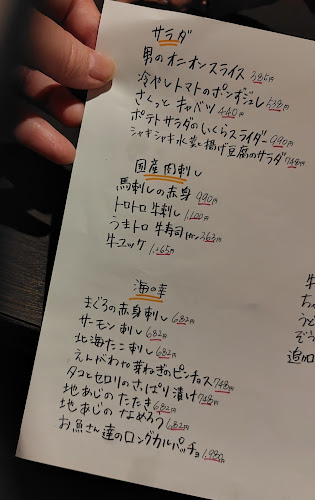 サラダ
男のオニオンスライス 385円
冷やしトマトのボンボジュレ 538円
さくっとキャベツ 440円
ポテトサラダのいくらスライダー 990円
シャキシャキ水菜と揚げ豆腐のサラダ 748円
国産肉刺し
馬刺しの赤身 990円
トロトロ牛刺し 1,100円
うまトロ牛寿司 363円
牛ユッケ 1,265円
海の幸
まぐろの赤身刺し 682円
サーモン刺し 682円
北海たこ刺し 682円
えんがわや芽ねぎのピンチョス 748円
タコとセロリのさっぱり漬け 748円
地あじのたたき 682円
地あじのなめろう 682円
お魚さん達のロングカルパッチョ 1,980円
牛
ち
うど
ぞう
追加